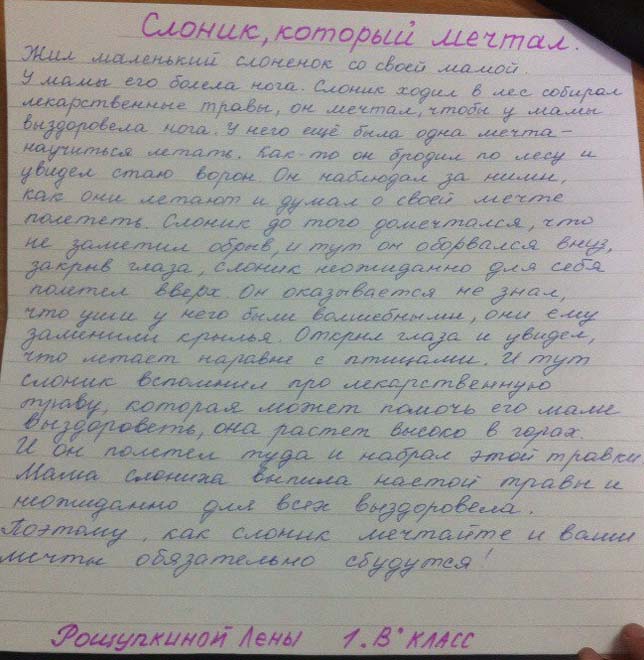 Слоник, который мечтал.
Жил маленький слоненок со своей мамой.
У мамы его болела нога. Слоник ходил в лес собирал
лекарственные травы, он мечтал, чтобы у мамы
выздоровела нога. У него ещё была одна мечта-
научиться летать. Как-то он бродил по лесу и
увидел стаю ворон. Он наблюдал за ними,
как они летают и думал о своей мечте
полететь. Слоник до того домечтался, что
не заметил обрыв, и тут он оборвался вниз,
закрыв глаза, слоник неожиданно для себя
полетел вверх. Он оказывается не знал,
что уши у него были волшебными, они ему
заменили крылья. Открыл глаза и увидел,
что летает наравне с птицами. И тут
слоник вспомнил про лекарственную
траву, которая может помочь его маме
выздороветь, она растет высоко в горах.
И он полетел туда и набрал этой травки.
Мама слониха выпила настой травы и
неожиданно для всех выздоровела.
Поэтому, как слоник мечтайте и ваши
мечты обязательно сбудутся!
Рощупкиной Лены 1. "В" класс